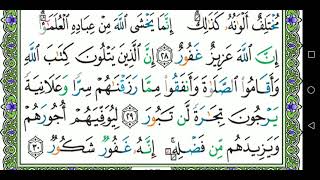 مُخْتَلِفٌ أَلْوَٰنُهُۥ كَذَٰلِكَ ۗ إِنَّمَا يَخْشَى ٱللَّهَ مِنْ عِبَادِهِ ٱلْعُلَمَٰٓؤُا۟ ۗ
إِنَّ ٱللَّهَ عَزِيزٌ غَفُورٌ ٢٨ إِنَّ ٱلَّذِينَ يَتْلُونَ كِتَٰبَ ٱللَّهِ
وَأَقَامُوا۟ ٱلصَّلَوٰةَ وَأَنفَقُوا۟ مِمَّا رَزَقْنَٰهُمْ سِرًّا وَعَلَانِيَةً
يَرْجُونَ تِجَٰرَةً لَّن تَبُورَ ٢٩ لِيُوَفِّيَهُمْ أُجُورَهُمْ
وَيَزِيدَهُم مِّن فَضْلِهِۦٓ ۚ إِنَّهُۥ غَفُورٌ شَكُورٌ ٣٠